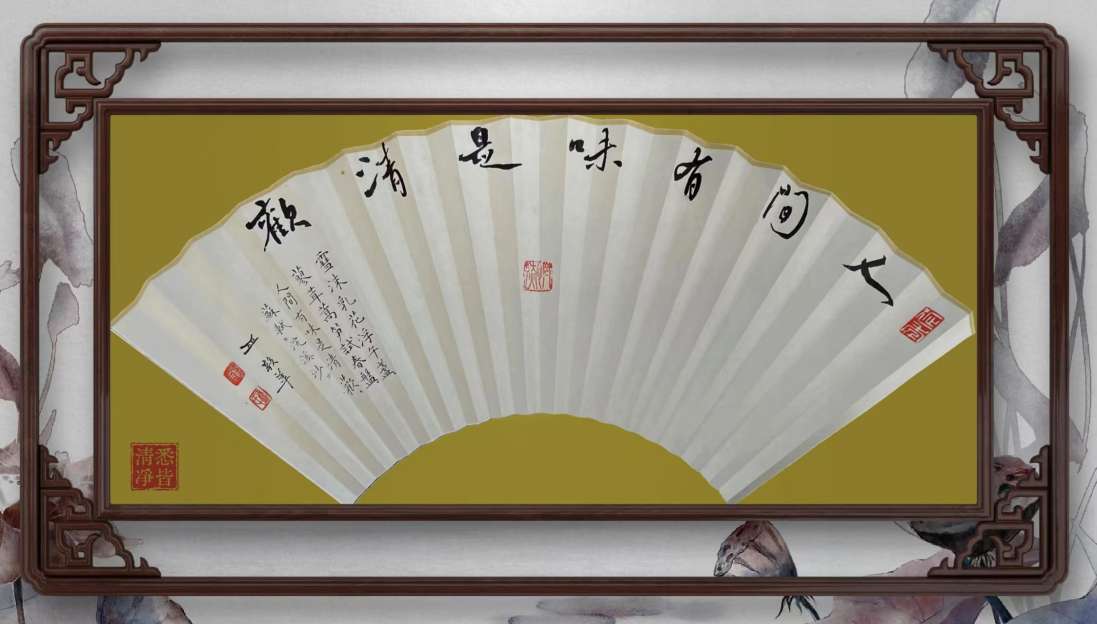 人間有味是清歡
雪沫乳花浮午盞
蓼茸蒿笋試春盤
人間有味是清歡
蘇軾浣溪沙
悉皆
清淨